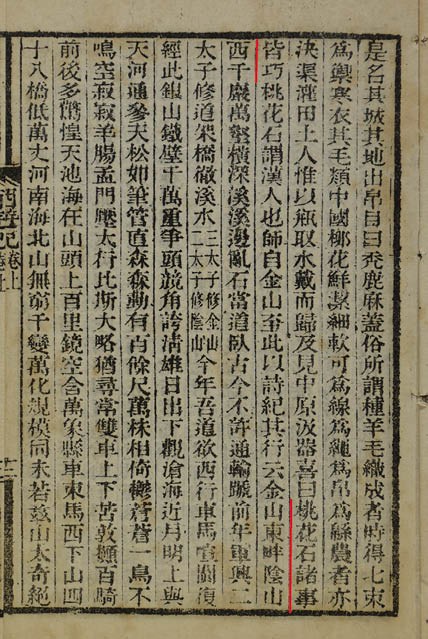 是名其城其地出帛目曰禿鹿麻蓋俗所謂種羊毛織成者時得七束
爲禦寒衣其毛類中國柳花鮮潔細軟可爲線爲繩爲帛爲緜農者亦
決渠灌田土人惟以瓶取水戴而歸及見中原汲器喜曰桃花石諸事
皆巧桃花石謂漢人也師自金山至此以詩紀其行云金山東畔陰山
西千巖萬壑橫深溪溪邊亂石當道臥古今不許通輪蹄前年軍興二
太子修道架橋徹溪水三太子修金山二太子修陰山今年吾道欲西行車馬喧闐復
經此銀山鐵壁千萬重爭頭競角誇清雄日出下觀滄海近月明上與
天河通參天松如筆管直森森動有百餘尺萬株相倚鬱蒼蒼一鳥不
鳴空寂寂羊腸孟門壓太行比斯大略猶尋常雙車上下苦敦顛百騎
前後多驚惶天池海在山頭上百里鏡空含萬象縣車束馬西下山四
十八橋低萬丈河南海北山無窮千變萬化規模同未若茲山太奇絕
西遊記卷上